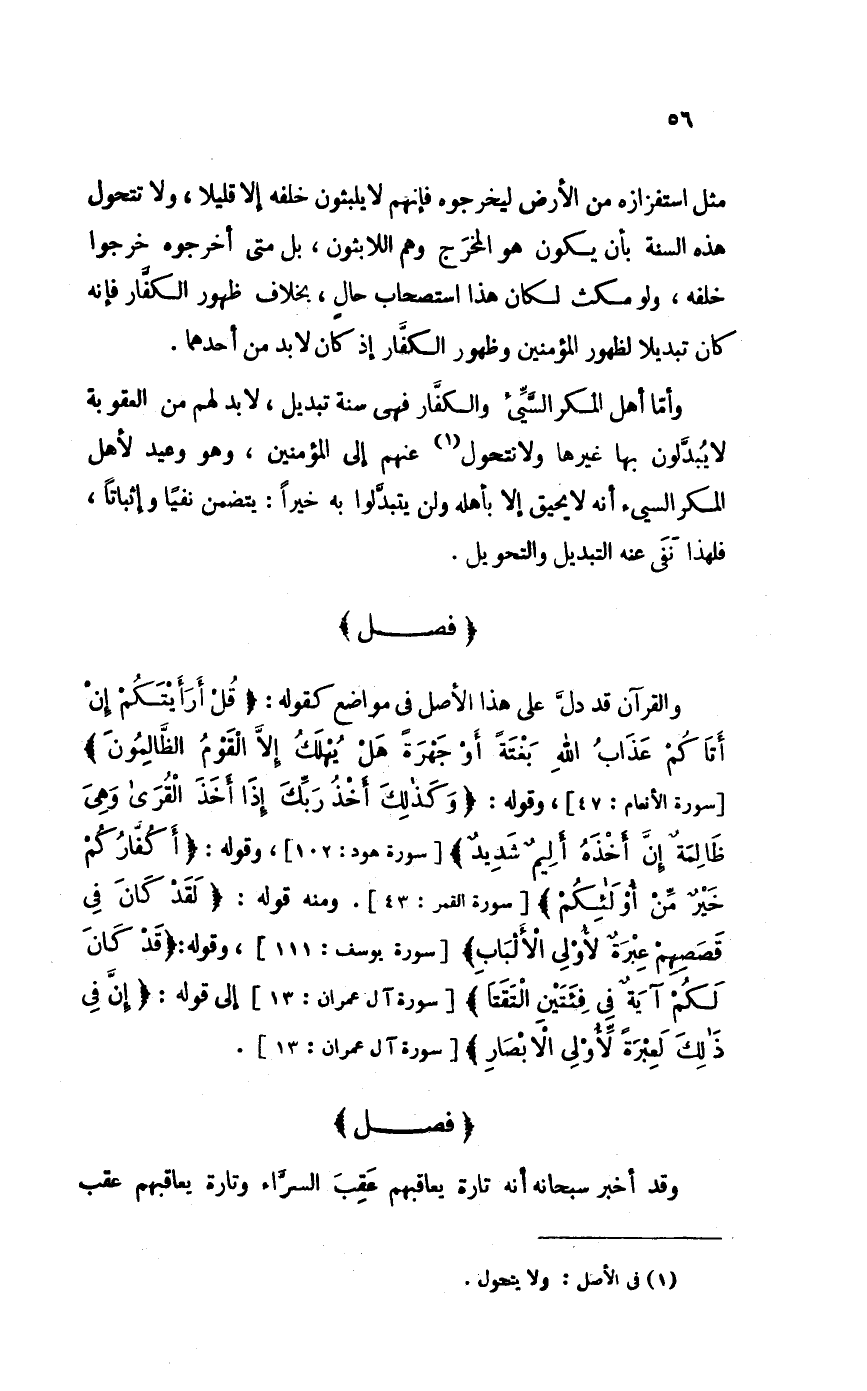 ٥٦
مثل استفزازه من الأرض ليخرجوه فإنهم لا يلبثون خلفه إلا قليلا ، ولا تتحول
هذه السنة بأن يكون هو المخرَج وهم اللابثون ، بل متى أخرجوه خرجوا
خلفه ، ولو مكث لكان هذا استصحاب حالٍ ، بخلاف ظهور الكفَّار فإنه
كان تبديلا لظهور المؤمنين وظهور الكفَّار إذ كان لا بد من أحدهما .
وأمّا أهل المكر السَّيِّئ والكفَّار فهى سنة تبديل ، لا بد لهم من العقوبة
لا يُبدَّلون بها غيرها ولا تتحول(١) عنهم إلى المؤمنين ، وهو وعيد لأهل
المكر السيىء أنه لا يحيق إلا بأهله ولن يتبدَّلوا به خيراً : يتضمن نفيًا وإثباتاً ،
فلهذا نَفَى عنه التبديل والتحويل .
﴿ فصــل ﴾
والقرآن قد دلَّ على هذا الأصل فى مواضع كقوله : ﴿ قُلْ أَرَأَيْتَكُمْ إِنْ
أَتَاكُمْ عَذَابُ اللهِ بَغْتَةً أَوْ جَهْرَةً هَلْ يُهْلَكُ إِلاَّ الْقَوْمُ الظَّالِمُونَ ﴾
[سورة الأنعام : ٤٧] ، وقوله : ﴿ وَكَذٰلِكَ أَخْذُ رَبِّكَ إِذَا أَخَذَ الْقُرَىٰ وَهِىَ
ظَالِمَةٌ إِنَّ أَخْذَهُ أَلِيمٌ شَدِيدٌ ﴾ [ سورة هود : ١٠٢] ، وقوله : ﴿ أَكُفَّارُكُمْ
خَيْرٌ مِّنْ أُوْلَئِكُمْ ﴾ [ سورة القمر : ٤٣ ] . ومنه قوله : ﴿ لَقَدْ كَانَ فِى
قَصَصِهِمْ عِبْرَةٌ لأُوْلِى الْأَلْبَابِ﴾ [سورة يوسف : ١١١ ] ، وقوله:﴿قَدْ كَانَ
لَكُمْ آيَةٌ فِى فِئَتَيْنِ الْتَقَتَا ﴾ [ سورة آل عمران : ١٣ ] إلى قوله : ﴿ إِنَّ فِى
ذٰلِكَ لَعِبْرَةً لِّأُوْلِى الْأَبْصَارِ ﴾ [ سورة آل عمران : ١٣ ] .
﴿ فصــل ﴾
وقد أخبر سبحانه أنه تارة يعاقبهم عَقِبَ السرَّاء وتارة يعاقبهم عقب
(١) فى الأصل : ولا يتحول .